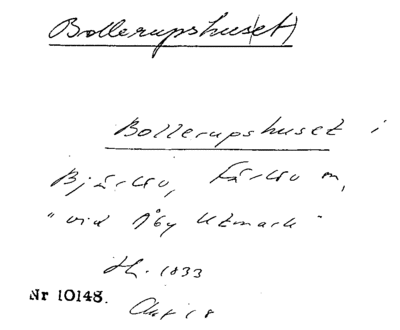 Bollerupshus(et)
Bollerupshuset i
Bjärsjö, Färlöv m,
"vid Åby Utmark"
Hh. 1833
Nr 10148.